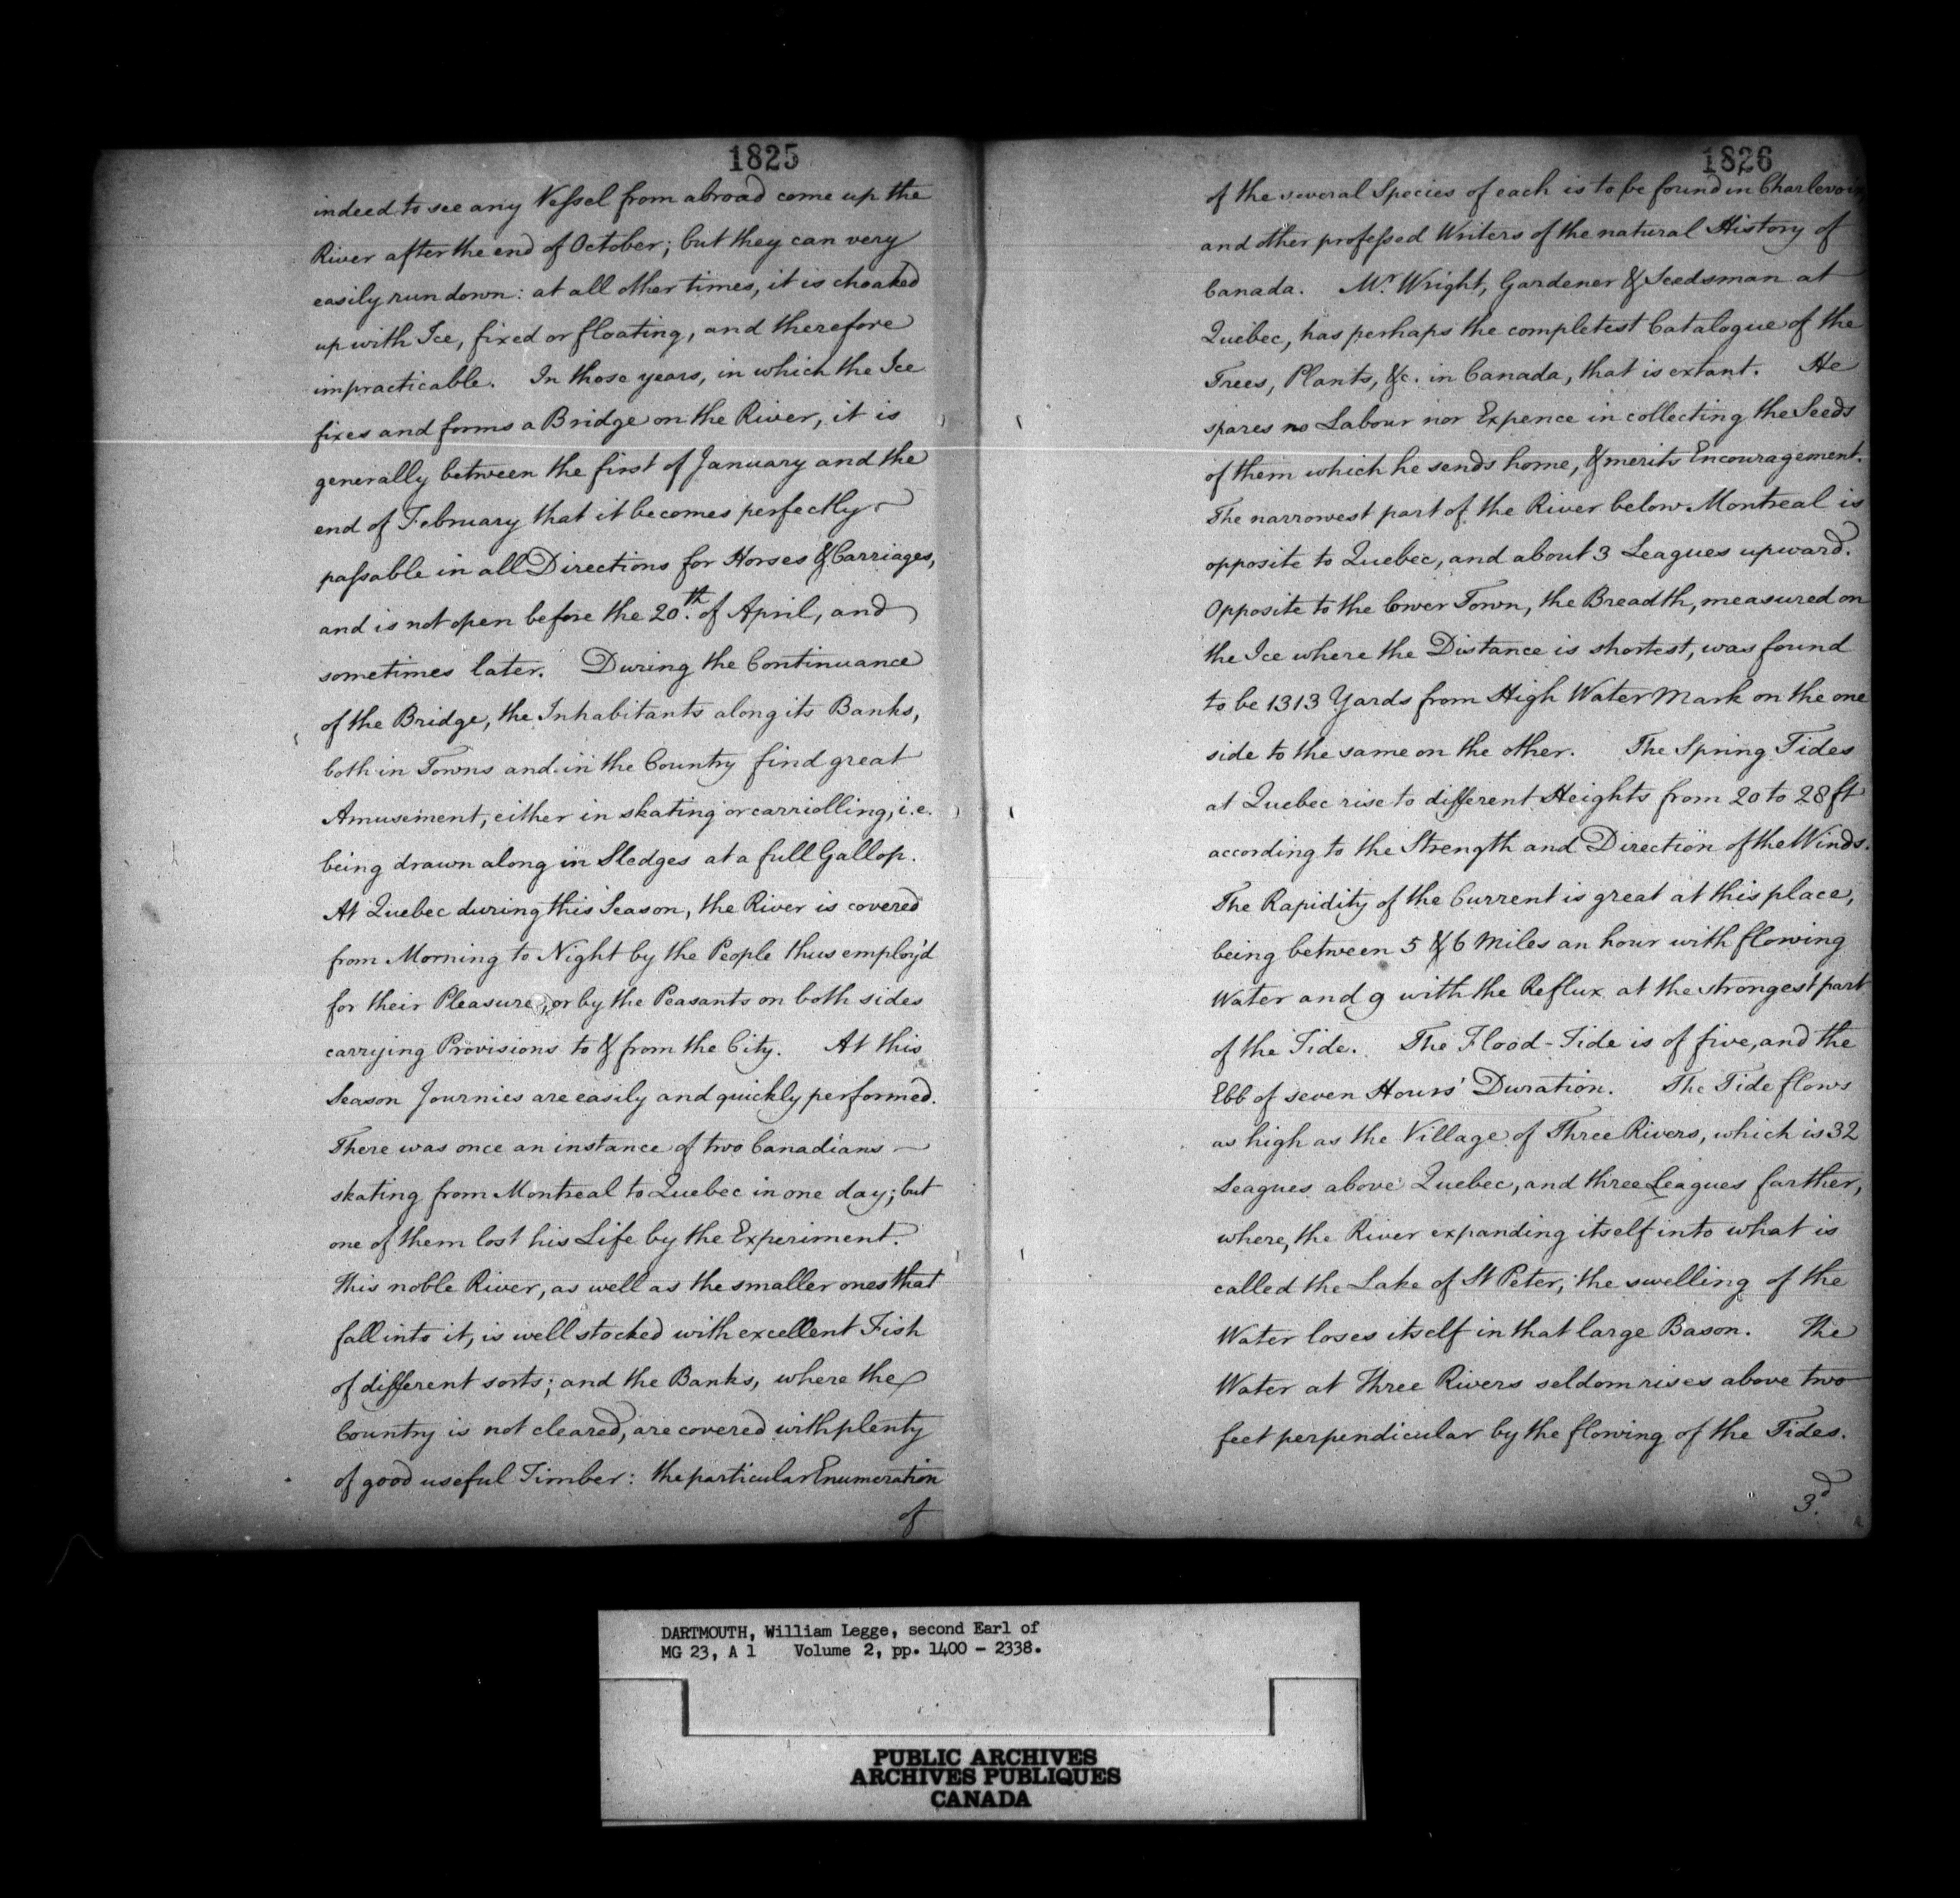 1825
indeed to see any Vessel from abroad come up the
River after the end of October; but they can very
easily run down: at all other times, it is choaked
up with Ice, fixed or floating, and therefore
impracticable. In those years, in which the Ice
fixes and forms a Bridge on the River, it is
generally between the first of January and the
end of February that it becomes perfectly
passable in all Directions for Horses & Carriages,
and is not open before the 20th. of April, and
sometimes later. During the Continuance
of the Bridge, the Inhabitants along its Banks,
both in Towns and in the Country find great
Amusement, either in skating or carriolling, i.e.
being drawn along in Sledges at a full Gallop.
At Quebec during this Season, the River is covered
from Morning to Night by the People thus employ'd
for their Pleasure, or by the Peasants on both sides
carrying Provisions to & from the City. At this
Season Journies are easily and quickly performed.
There was once an instance of two Canadians
skating from Montreal to Quebec in one day; but
one of them lost his Life by the Experiment.
This noble River, as well as the smaller ones that
fall into it, is well stocked with excellent Fish
of different sorts; and the Banks, where the
Country is not cleared, are covered with plenty
of good useful Timber: the particular Enumeration
of
1826
of the several Species of each is to be found in Charlevoix,
and other professed Writers of the natural History of
Canada. Mr. Wright, Gardener & Seedsman at
Quebec, has perhaps the completest Catalogue of the
Trees, Plants, &c. in Canada, that is extant. He
spares no Labour nor Expence in collecting the Seeds
of them which he sends home, & merits Encouragement.
The narrowest part of the River below Montreal is
opposite to Quebec, and about 3 Leagues upward.
Opposite to the lower Town, the Breadth, measured on
the Ice where the Distance is shortest, was found
to be 1313 Yards from High Water Mark on the one
side to the same on the other. The Spring Tides
at Quebec rise to different Heights from 20 to 28 ft
according to the Strength and Direction of the Winds.
The Rapidity of the Current is great at this place,
being between 5 & 6 Miles an hour with flowing
Water and 9 with the Reflux at the strongest part
of the Tide. The Flood-Tide is of five, and the
Ebb of seven Hours' Duration. The Tide flows
as high as the Village of Three Rivers, which is 32
Leagues above Quebec, and three Leagues farther,
where, the River expanding itself into what is
called the Lake of St Peter, the swelling of the
Water loses itself in that large Bason. The
Water at Three Rivers seldom rises above two
feet perpendicular by the flowing of the Tides.
3d.
DARTMOUTH, William Legge, second Earl of
MG 23, A 1 Volume 2, pp. 1400 - 2338.
PUBLIC ARCHIVES
ARCHIVES PUBLIQUES
CANADA